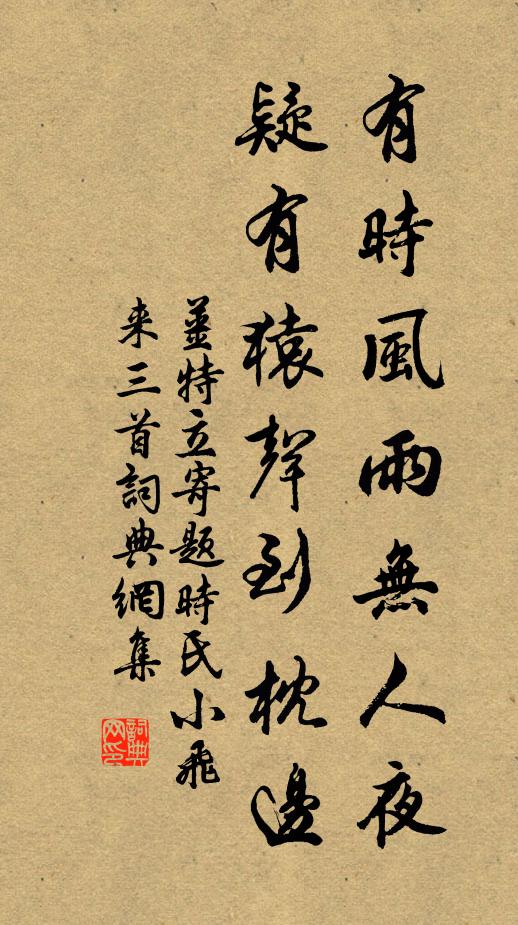 有時風雨無人夜
疑有猿聲到枕邊
姜特立寄题時氏小飛
来三首詞典網集
詞典網印